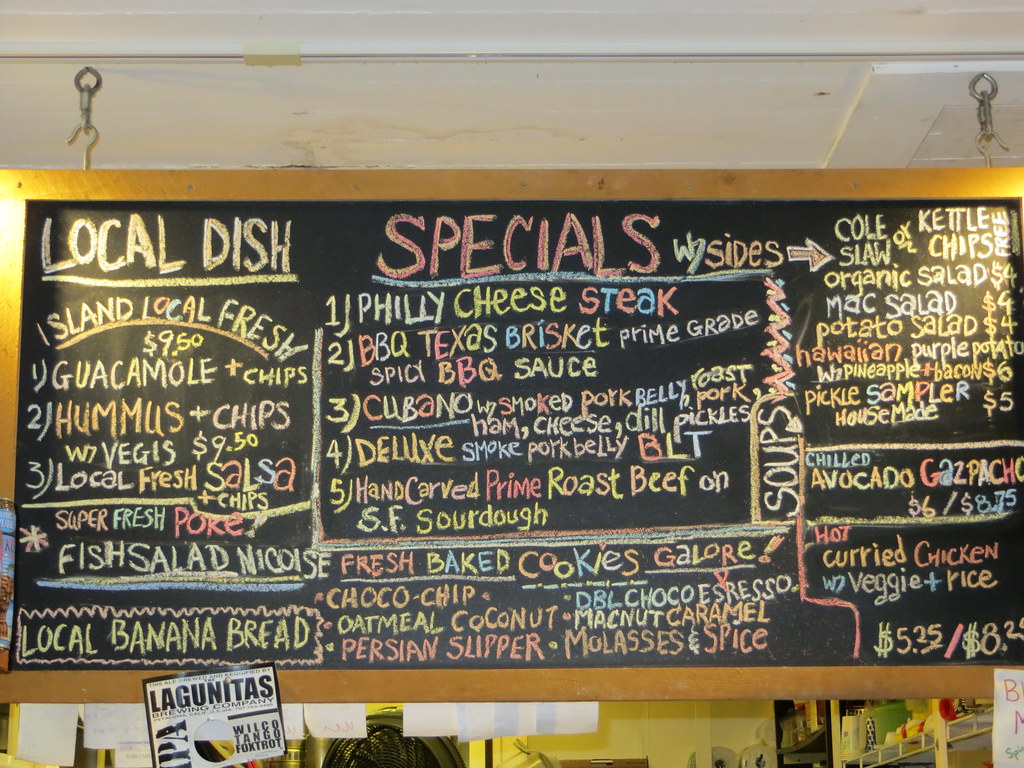 LOCAL DISH
ISLAND LOCAL FRESH
$9.50
1) GUACAMOLE + CHIPS
2) HUMMUS + CHIPS
W/ VEGIS $9.50
3) Local Fresh SALSA
+ CHIPS
SUPER FRESH POKE!
* FISH SALAD NICOISE
LOCAL BANANA BREAD
SPECIALS W/ SIDES
1) PHILLY CHEESE STEAK
2) BBQ TEXAS BRISKET PRIME GRADE
SPICY BBQ SAUCE
3) CUBANO W/ SMOKED PORK BELLY, roast pork,
ham, cheese, dill PICKLES
4) DELUXE SMOKE porkbelly BLT
5) HandCarved Prime Roast Beef on
S.F. Sourdough
FRESH BAKED COOKIES GALORE!
· CHOCO-CHIP · DBL CHOCO ESPRESSO
· OATMEAL COCONUT · MACNUT CARAMEL
· PERSIAN SLIPPER · MOLASSES & SPICE
COLE SLAW or KETTLE CHIPS FREE
organic SALAD $4
MAC SALAD $4
potato SALAD $4
hawaiian purple potato
W/ PINEAPPLE + bacon $6
pickle SAMPLER $5
HOUSE Made
SOUPS
CHILLED
AVOCADO GAZPACHO
$6 / $8.75
HOT
curried CHICKEN
w/ Veggie + rice
$5.25 / $8.2
LAGUNITAS
BREWING COMPANY
IPA
WILCO
TANGO
FOXTROT